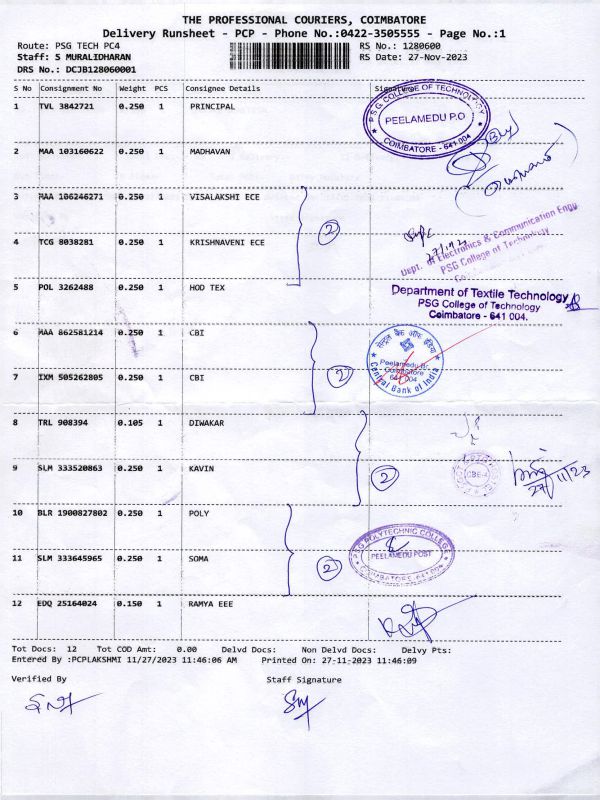 THE PROFESSIONAL COURIERS, COIMBATORE
Delivery Runsheet - PCP - Phone No.:0422-3505555 - Page No.:1
Route: PSG TECH PC4 RS No.: 1280600
Staff: S MURALIDHARAN RS Date: 27-Nov-2023
DRS No.: DCJB128060001
S No Consignment No Weight PCS Consignee Details Signature
1 TVL 3842721 0.250 1 PRINCIPAL
PSG COLLEGE OF TECHNOLOGY
PEELAMEDU P.O
COIMBATORE - 641 004
2 MAA 103160622 0.250 1 MADHAVAN
3 MAA 106246271 0.250 1 VISALAKSHI ECE
2
4 TCG 8038281 0.250 1 KRISHNAVENI ECE
Dept. of Electronics & Communication Engg
PSG College of Technology
5 POL 3262488 0.250 1 HOD TEX
Department of Textile Technology
PSG College of Technology
Coimbatore - 641 004.
6 MAA 862581214 0.250 1 CBI
सेन्ट्रल बैंक ऑफ इंडिया
Peelamedu Br.
Coimbatore
641 004
Central Bank of India
7 IXM 505262805 0.250 1 CBI
2
8 TRL 908394 0.105 1 DIWAKAR
9 SLM 333520863 0.250 1 KAVIN
2
CBE-4
27/11/23
10 BLR 1900827802 0.250 1 POLY
PSG POLYTECHNIC COLLEGE
PEELAMEDU POST
COIMBATORE-641 004
11 SLM 333645965 0.250 1 SOMA
2
12 EDQ 25164024 0.150 1 RAMYA EEE
Tot Docs: 12 Tot COD Amt: 0.00 Delvd Docs: Non Delvd Docs: Delvy Pts:
Entered By :PCPLAKSHMI 11/27/2023 11:46:06 AM Printed On: 27-11-2023 11:46:09
Verified By Staff Signature